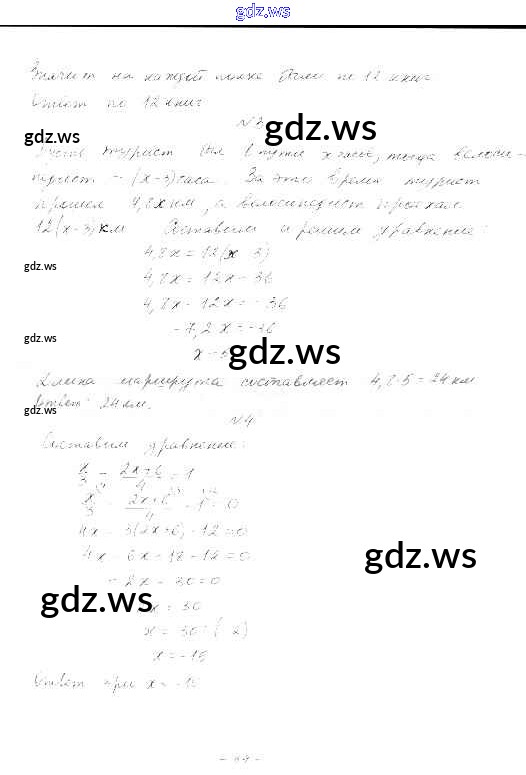 gdz.ws
Значит на каждой полке было по 12 книг
Ответ по 12 книг
№3
gdz.ws
gdz.ws
Пусть турист был в пути x часов, тогда велоси-
педист - (x-3) часа. За это время турист
прошел 4,8x км, а велосипедист проехал
12(x-3) км Составим и решим уравнение:
4,8x = 12(x-3)
gdz.ws
4,8x = 12x - 36
4,8x - 12x = -36
-7,2x = -36
gdz.ws
gdz.ws
x = 5
Длина маршрута составляет 4,8·5 = 24 км
Ответ: 24 км.
gdz.ws
№4
Составим уравнение:
x/3 - (2x+6)/4 = 1
x/3 - (2x+6)/4 - 1 = 0
4x - 3(2x+6) - 12 = 0
4x - 6x - 18 - 12 = 0
gdz.ws
-2x - 30 = 0
gdz.ws
x = 30
x = 30 : (-2)
x = -15
Ответ при x = -15